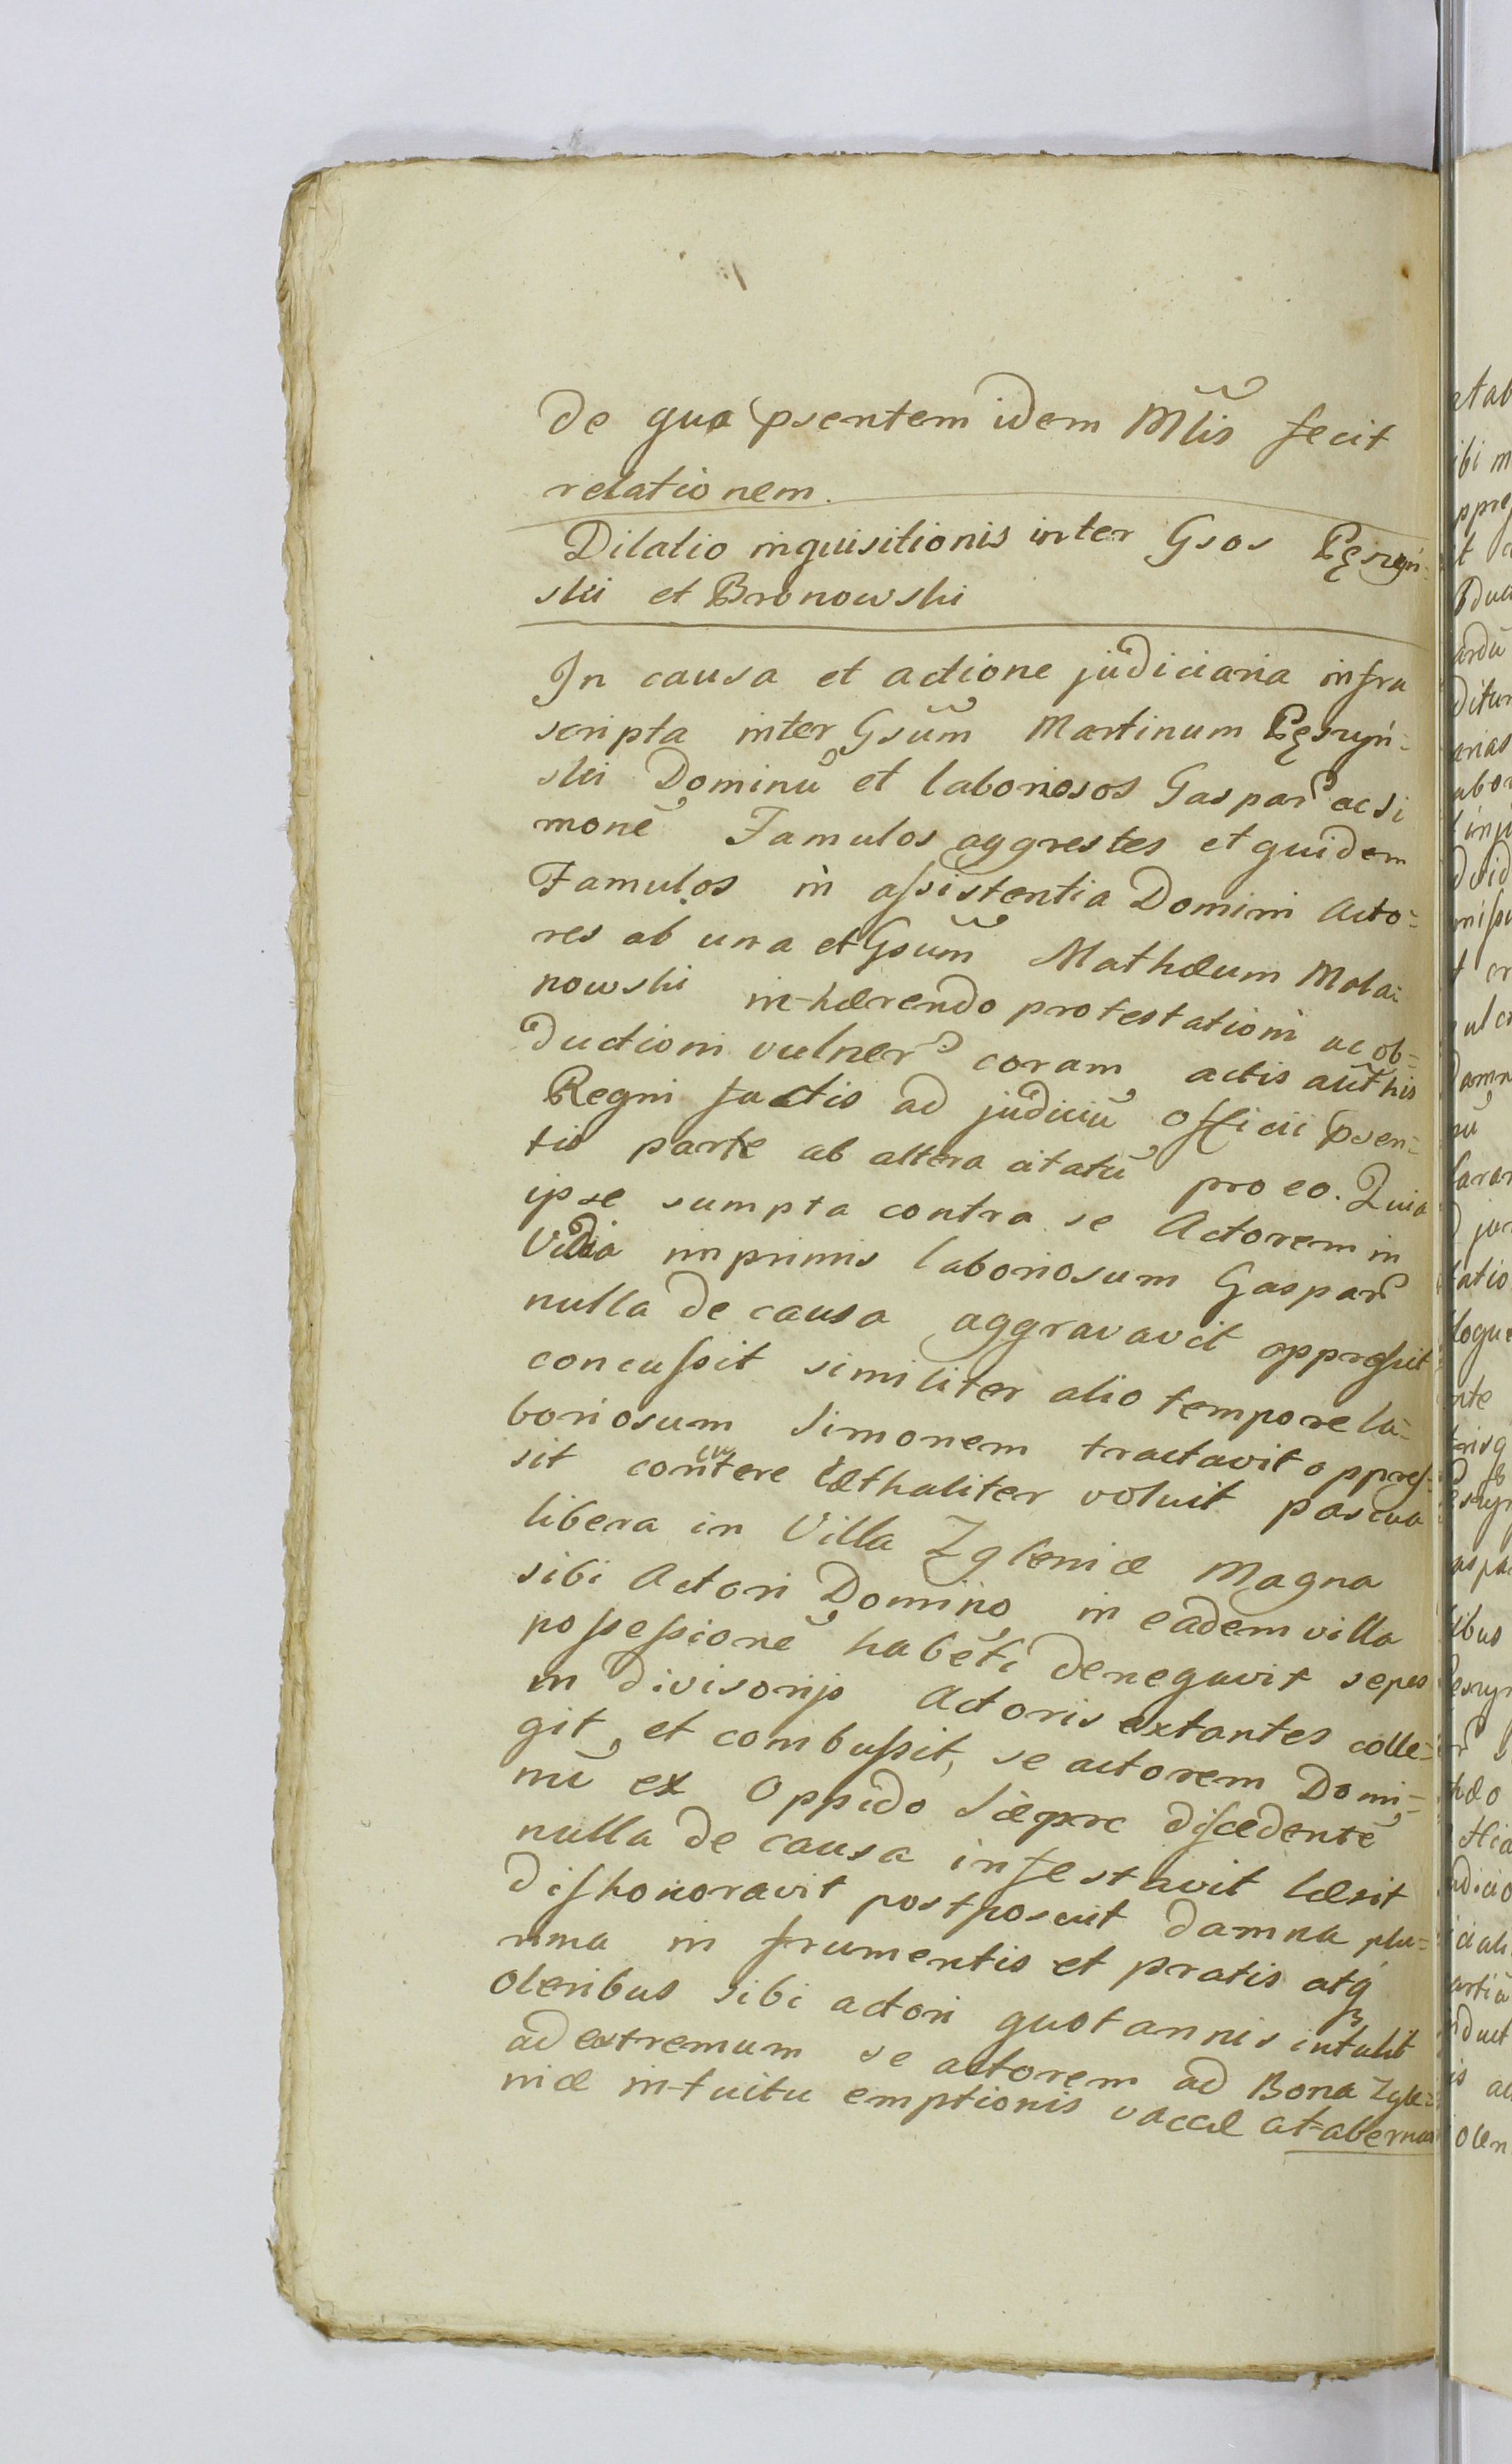 de qua psentem idem Mlis fecit
relationem.
Dilatio inquisitionis inter Gsos Pęsryń-
ski et Bronowski
In causa et actione judiciaria infra
scripta inter Gsum Martinum Pęsryń-
ski Dominū et laboriosos Gaspar ac Si
monē Famulos aggrestes et quidem
Famulos in assistentia Domini Acto-
res ab una et Gsum Mathæum Mala-
nowski in-hærendo protestationi ac ob-
ductioni vulner coram actis authis
Regni factis ad judiciū officii psen-
tis parte ab altera citatū pro eo. Quia
ipse sumpta contra se Actorem in
Vidia imprimis laboriosum Gaspar
nulla de causa aggravavit oppressit
concussit similiter alio tempore la-
boriosum Simonem tractavit oppres-
sit contere læthaliter voluit pascua
libera in Villa Zgleniæ Magna
sibi Actori Domino in eadem villa
possessionē habēti denegavit sepes
in divisorijs Actoris extantes colle-
git et combussit, se actorem Domi-
nū ex Oppido sæpere discedentē
nulla de causa infestavit læsit
dishonoravit postposcuit damna plu-
rima in frumentis et pratis atq
oleribus sibi actori quotannis intulit
ad extremum se actorem ad Bona Zgle-
niæ in-tuitu emptionis vaccæ at-abernar